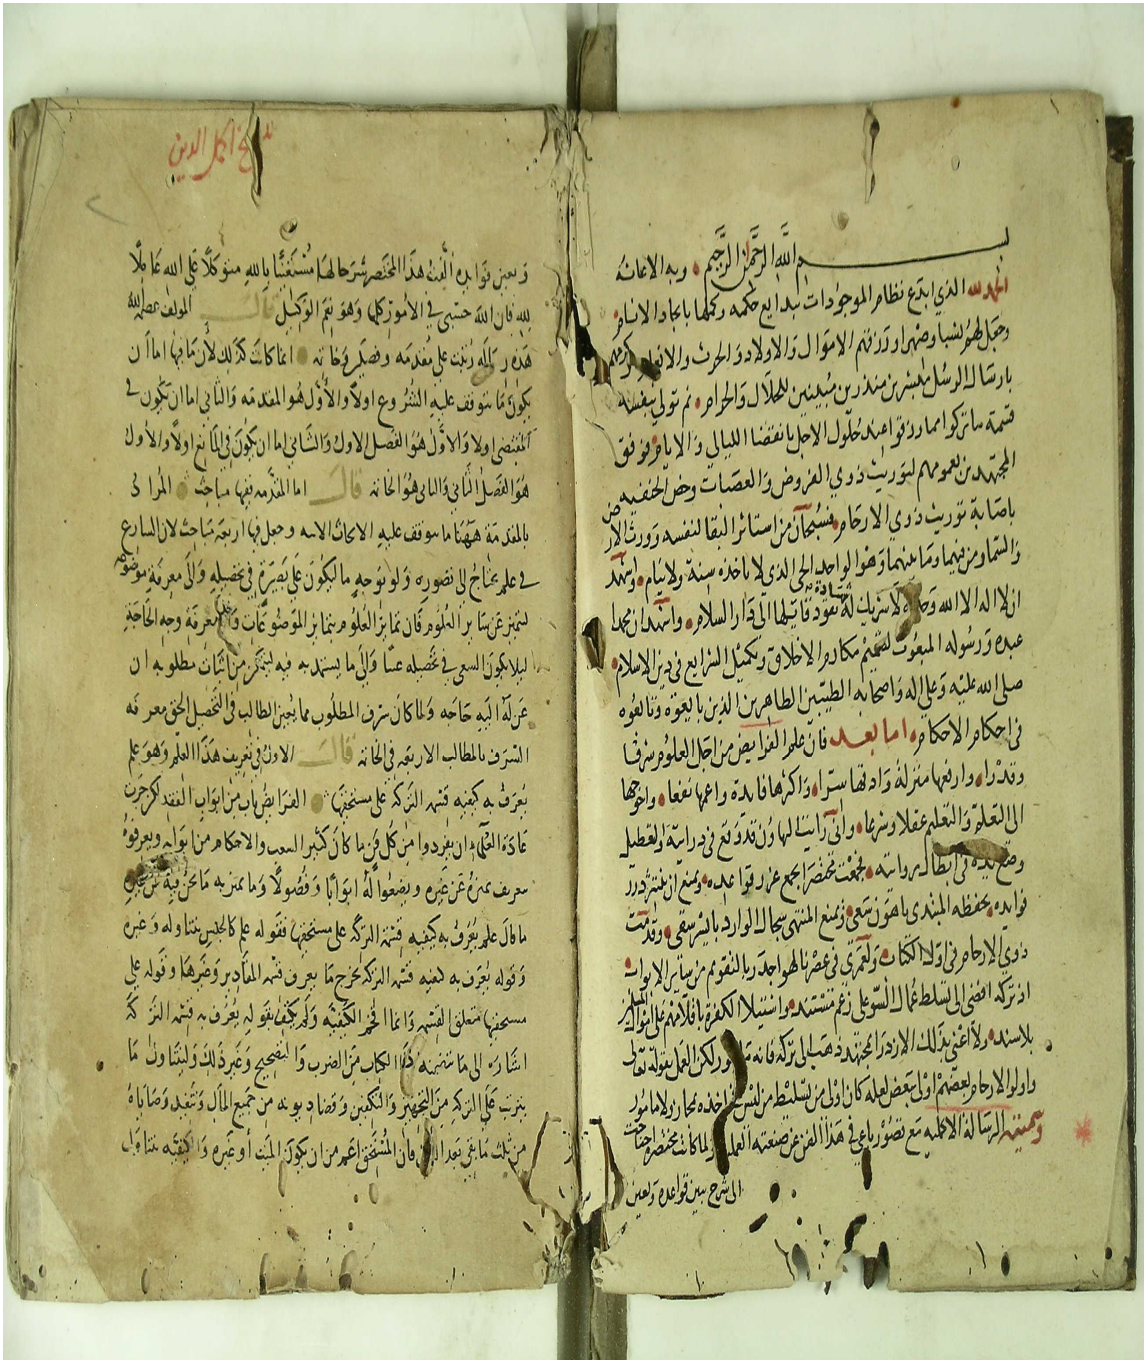 بسم الله الرحمن الرحيم وبه الاعانة
الحمد لله الذي ابتدع نظام الموجودات ببدايع حكمه وكملها بايجاد الانام
وجعل لهم نسبا وصهرا ورزقهم الاموال والاولاد والحرث والانعام
بارسال الرسل مبشرين منذرين مبينين للحلال والحرام ثم تولى بنفسه
قسمة ما تركوا مما رزقوا عند حلول الاجل بانقضا الليالي والايام فوفق
المجتهدين بعمومهم لتوريث ذوي الفروض والعصبات وخص الحنفيه
باصابة توريث ذوي الارحام فسبحان من استاثر البقا لنفسه وورث الارض
والسما ومن فيهما وما عنهما وهو الواحد الحي الذي لا تاخذه سنة ولا ينام واشهد
ان لا اله الا الله وحده لا شريك له شهادة تقود قايلها الى دار السلام واشهد ان محمدا
عبده ورسوله المبعوث لتتميم مكارم الاخلاق وتكميل الشرايع في دين الاسلام
صلى الله عليه وعلى اله واصحابه الطيبين الطاهرين الذين بايعوه وتابعوه
في احكام الاحكام اما بعد فان علم الفرايض من اجل العلوم شرفا
وقدرا وارفعها منزلة وادقها سرا واكثرها فايدة واعمها نفعا واحوجها
الى التعلم والتعليم عقلا وشرعا واني رايت الهاون قد وقع في درايته والتعطيل
وضع يده في ابطال روايته فجمعت مختصرا يجمع غرر قواعده ويمنع ان ينتثر درر
فوايده يحفظه المبتدي باهون سعي ويمنع المنتهي سجال الوارد بايسر سقي وقدمت
ذوي الارحام في اول الكتاب ولعمري في عصرنا لهو اجدر بالتقويم من ساير الابواب
اذ تركه افضى الى تسلط عمال السو على زعم مستند واستيلا الكفرة باقلامهم على اموال المسلمين
بلا سند ولا اعني بذلك الازدرا بمجتهد ذهب الى تركه فانه ماجور لكن العمل بقوله تعالى
واولوا الارحام بعضهم اولى ببعض لعله كان اولى من تسليط من ليس اخذه بمجاز ولا مامور
وسميته الرسالة الاكمليه مع تصور باعي في هذا الفن عن صنعته العملية ولما كانت مختصرة احتاجت
الى شرح يبين قواعده ويعين
شيخ اكمل الدين
ويعين فوايده الفت هذا المختصر شرحا لها مستعينا بالله متوكلا على الله عاملا
لله فان الله حسبي في الامور كلها وهو نعم الوكيل قال المولف عصمه الله
هذه رسالة رتبت على مقدمه وفصلين وخاتمه انما كانت كذلك لان ما فيها اما ان
يكون ما يتوقف عليه الشروع اولا والاول هو المقدمه والثاني اما ان يكون في
المقتضي اولا والاول هو الفصل الاول والثاني اما ان يكون في المانع اولا والاول
هو الفصل الثاني والثاني هو الخاتمه قال اما المقدمه ففيها مباحث المراد
بالمقدمة ههنا ما يتوقف عليه الابحاث الاتيه وجعل فيها اربعة مباحث لان الشارع
في علم يحتاج الى تصوره ولو بوجه ما ليكون على بصيرة في تحصيله والى معرفة موضوعه
ليتميز عن سائر العلوم فان تمايز العلوم بتمايز الموضوعات والى معرفة وجه الحاجة
ليلا يكون السعي في تحصيله عبثا والى ما يستمد به فيه ليتمكن من اثبات مطلوبه ان
عن له اليه حاجه ولما كان شرف المطلوب مما يعين الطالب في التحصيل الحق معرفه
الشرف بالمطالب الاربعه في الخاتمه قال الاول في تعريف هذا العلم وهو علم
يعرف به كيفيه قسمه التركة على مستحقيها الفرايض باب من ابواب الفقه لكن جرت
عادة العلماء ان يفردوا من كل فن ما كان كثير الشعب والاحكام من ابوابه ويعرفوه
بتعريف يميزه عن غيره ويضعوا له ابوابا وفصولا وما يميز به ما نحن فيه عن غيره
ما قال علم يعرف به كيفيه قسمة التركة على مستحقيها فقوله علم كالجنس يتناوله وغيره
وقوله يعرف به كيفيه قسمه التركه يخرج ما يعرف قسمه المقادير وغيرها وقوله على
مستحقيها متعلق القسمه وانما اقحم الكيفيه ولم يكتف بقوله يعرف به قسمه التركة
اشارة الى ما تتضمنه هذا الكتاب من الضرب والتصحيح وغير ذلك وليتناول ما
يترتب على التركه من التجهيز والتكفين وقضا ديونه من جميع المال وتنفيذ وصاياه
من ثلث ما بقي بعد الدين فان المستحق اعم من ان يكون الميت او غيره والكيفيه تتناول